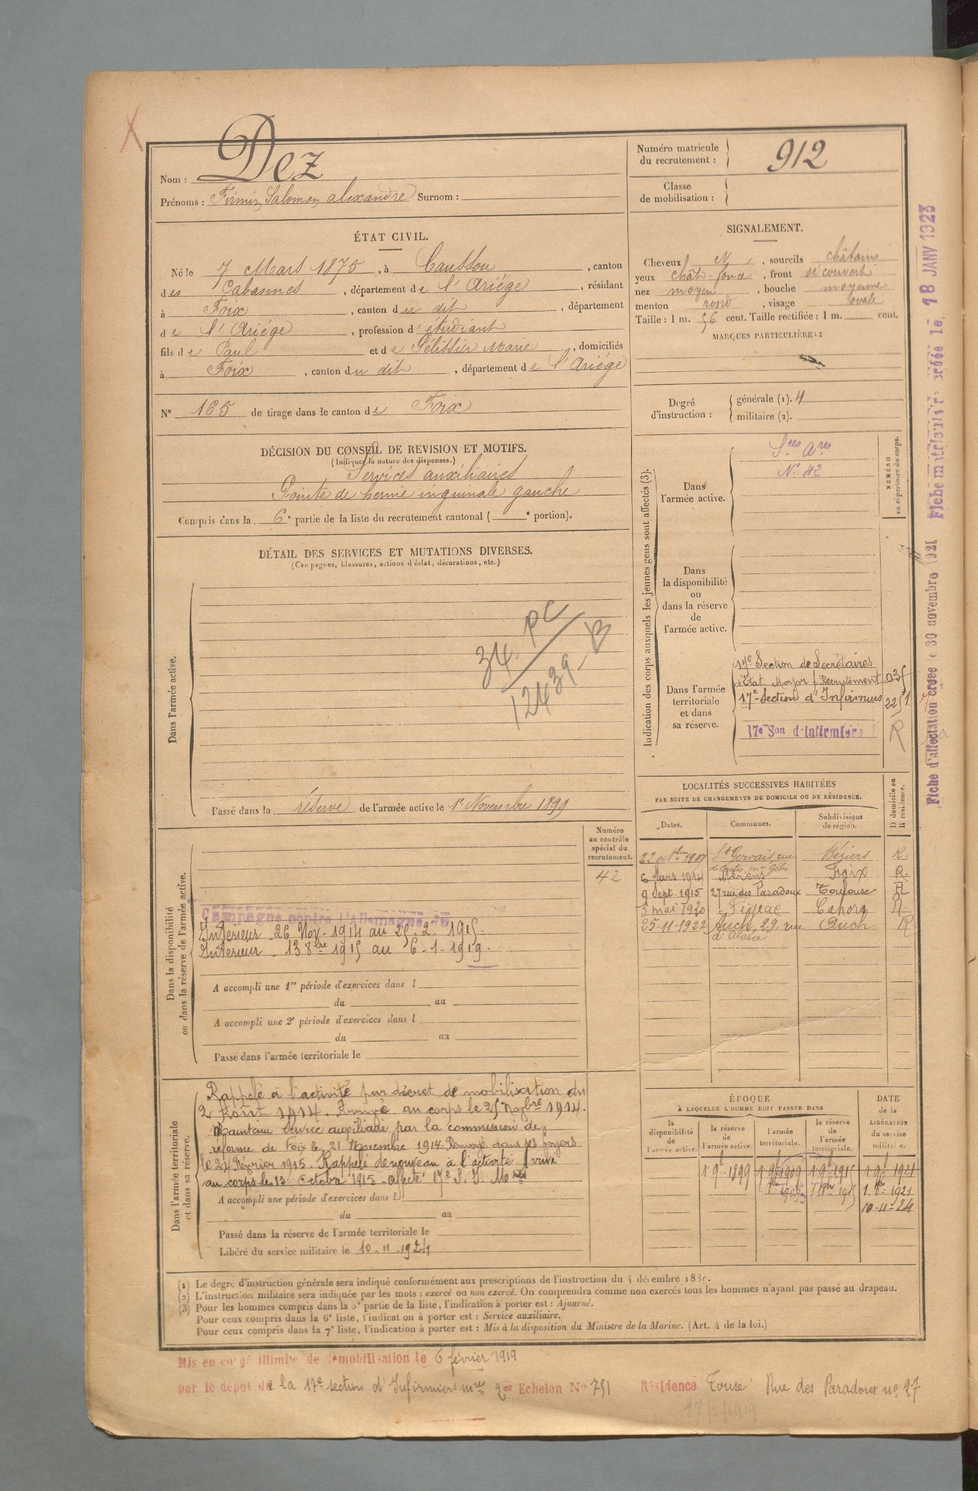 Nom : Dez
Prénoms : Firmin, Salomon, alexandre Surnom :
Numéro matricule du recrutement : 912
Classe de mobilisation :
ÉTAT CIVIL.
Né le 7 Mars 1875, à Caussou, canton
des Cabannes, département de l'Ariége, résidant
à Foix, canton du dit, département
de l'Ariége, profession d'étudiant
fils de Paul et de Pélissier Marie, domiciliés
à Foix, canton du dit, département de l'Ariége
N° 165 de tirage dans le canton de Foix
SIGNALEMENT.
Cheveux N, sourcils châtains
yeux chât-foncé, front découvert
nez moyen, bouche moyenne
menton rond, visage ovale
Taille : 1 m. 56 cent. Taille rectifiée : 1 m. cent.
MARQUES PARTICULIÈRES :
Degré d'instruction : générale (1). 4
militaire (2).
DÉCISION DU CONSEIL DE REVISION ET MOTIFS.
(Indiquer la nature des dispenses.)
Services auxiliaires
Pointe de hernie inguinale gauche
Compris dans la 6e partie de la liste du recrutement cantonal ( e portion).
DÉTAIL DES SERVICES ET MUTATIONS DIVERSES.
(Campagnes, blessures, actions d'éclat, décorations, etc.)
Dans l'armée active.
34 PC
12439 B
Passé dans la réserve de l'armée active le 1er Novembre 1899
Indication des corps auxquels les jeunes gens sont affectés (3).
NUMÉRO au répertoire du corps.
Dans l'armée active.
Sces Ares
N° 42
Dans la disponibilité ou dans la réserve de l'armée active.
Dans l'armée territoriale et dans sa réserve.
17e Section de Secrétaires
d'Etat Major Recrutement
17e Section d'Infirmiers
17e Son d'Infirmiers
R
Fiche d'affectation créée le 30 novembre 1921 Fiche matriculaire créée le 18 JANV 1923
LOCALITÉS SUCCESSIVES HABITÉES
PAR SUITE DE CHANGEMENTS DE DOMICILE OU DE RÉSIDENCE.
Dates. Communes. Subdivisions de région. D domicile ou R résidence.
St Gervais, rue Béziers R.
6 Mars 1914 Foix R.
9 Sept. 1915 27 rue des Paradoux Toulouse R
5 mai 1920 Figeac Cahors R
25-11-1922 Auch, 29 rue Auch R
d'Alsace
Numéro au contrôle spécial du recrutement.
42
Dans la disponibilité ou dans la réserve de l'armée active.
Campagne contre l'Allemagne du
Intérieur 26 Nov. 1914 au 25-2-1915
Intérieur 13 8bre 1915 au 6-1-1919.
A accompli une 1re période d'exercices dans l
du au
A accompli une 2e période d'exercices dans l
du au
Passé dans l'armée territoriale le
Dans l'armée territoriale et dans sa réserve.
Rappelé à l'activité par décret de mobilisation du
2 Août 1914. Arrivé au corps le 25 Novbre 1914.
Maintenu service auxiliaire par la commission de
réforme de Foix le 21 Novembre 1914. Renvoyé dans ses foyers
le 24 Février 1915. Rappelé de nouveau à l'activité Arrivé
au corps le 13 Octobre 1915 affecté 17e S. I. M
A accompli une période d'exercices dans l
du au
Passé dans la réserve de l'armée territoriale le
Libéré du service militaire le 10-11-1924
ÉPOQUE
À LAQUELLE L'HOMME DOIT PASSER DANS
la disponibilité de l'armée active. la réserve de l'armée active. l'armée territoriale. la réserve de l'armée territoriale.
DATE de la LIBÉRATION du service militaire.
1 9bre 1899 1 9bre 1909 1 9bre 1915 1 9bre 1921
10-11-24
(1) Le degré d'instruction générale sera indiqué conformément aux prescriptions de l'instruction du 4 décembre 1889.
(2) L'instruction militaire sera indiquée par les mots : exercé ou non exercé. On comprendra comme non exercés tous les hommes n'ayant pas passé au drapeau.
(3) Pour les hommes compris dans la 5e partie de la liste, l'indication à porter est : Ajourné.
Pour ceux compris dans la 6e liste, l'indication à porter est : Service auxiliaire.
Pour ceux compris dans la 7e liste, l'indication à porter est : Mis à la disposition du Ministre de la Marine. (Art. 4 de la loi.)
Mis en congé illimité de démobilisation le 6 février 1919
par le dépôt de la 17e section d'Infirmiers mres 2er Echelon N° 751 Résidence Toulse Rue des Paradoux n° 27